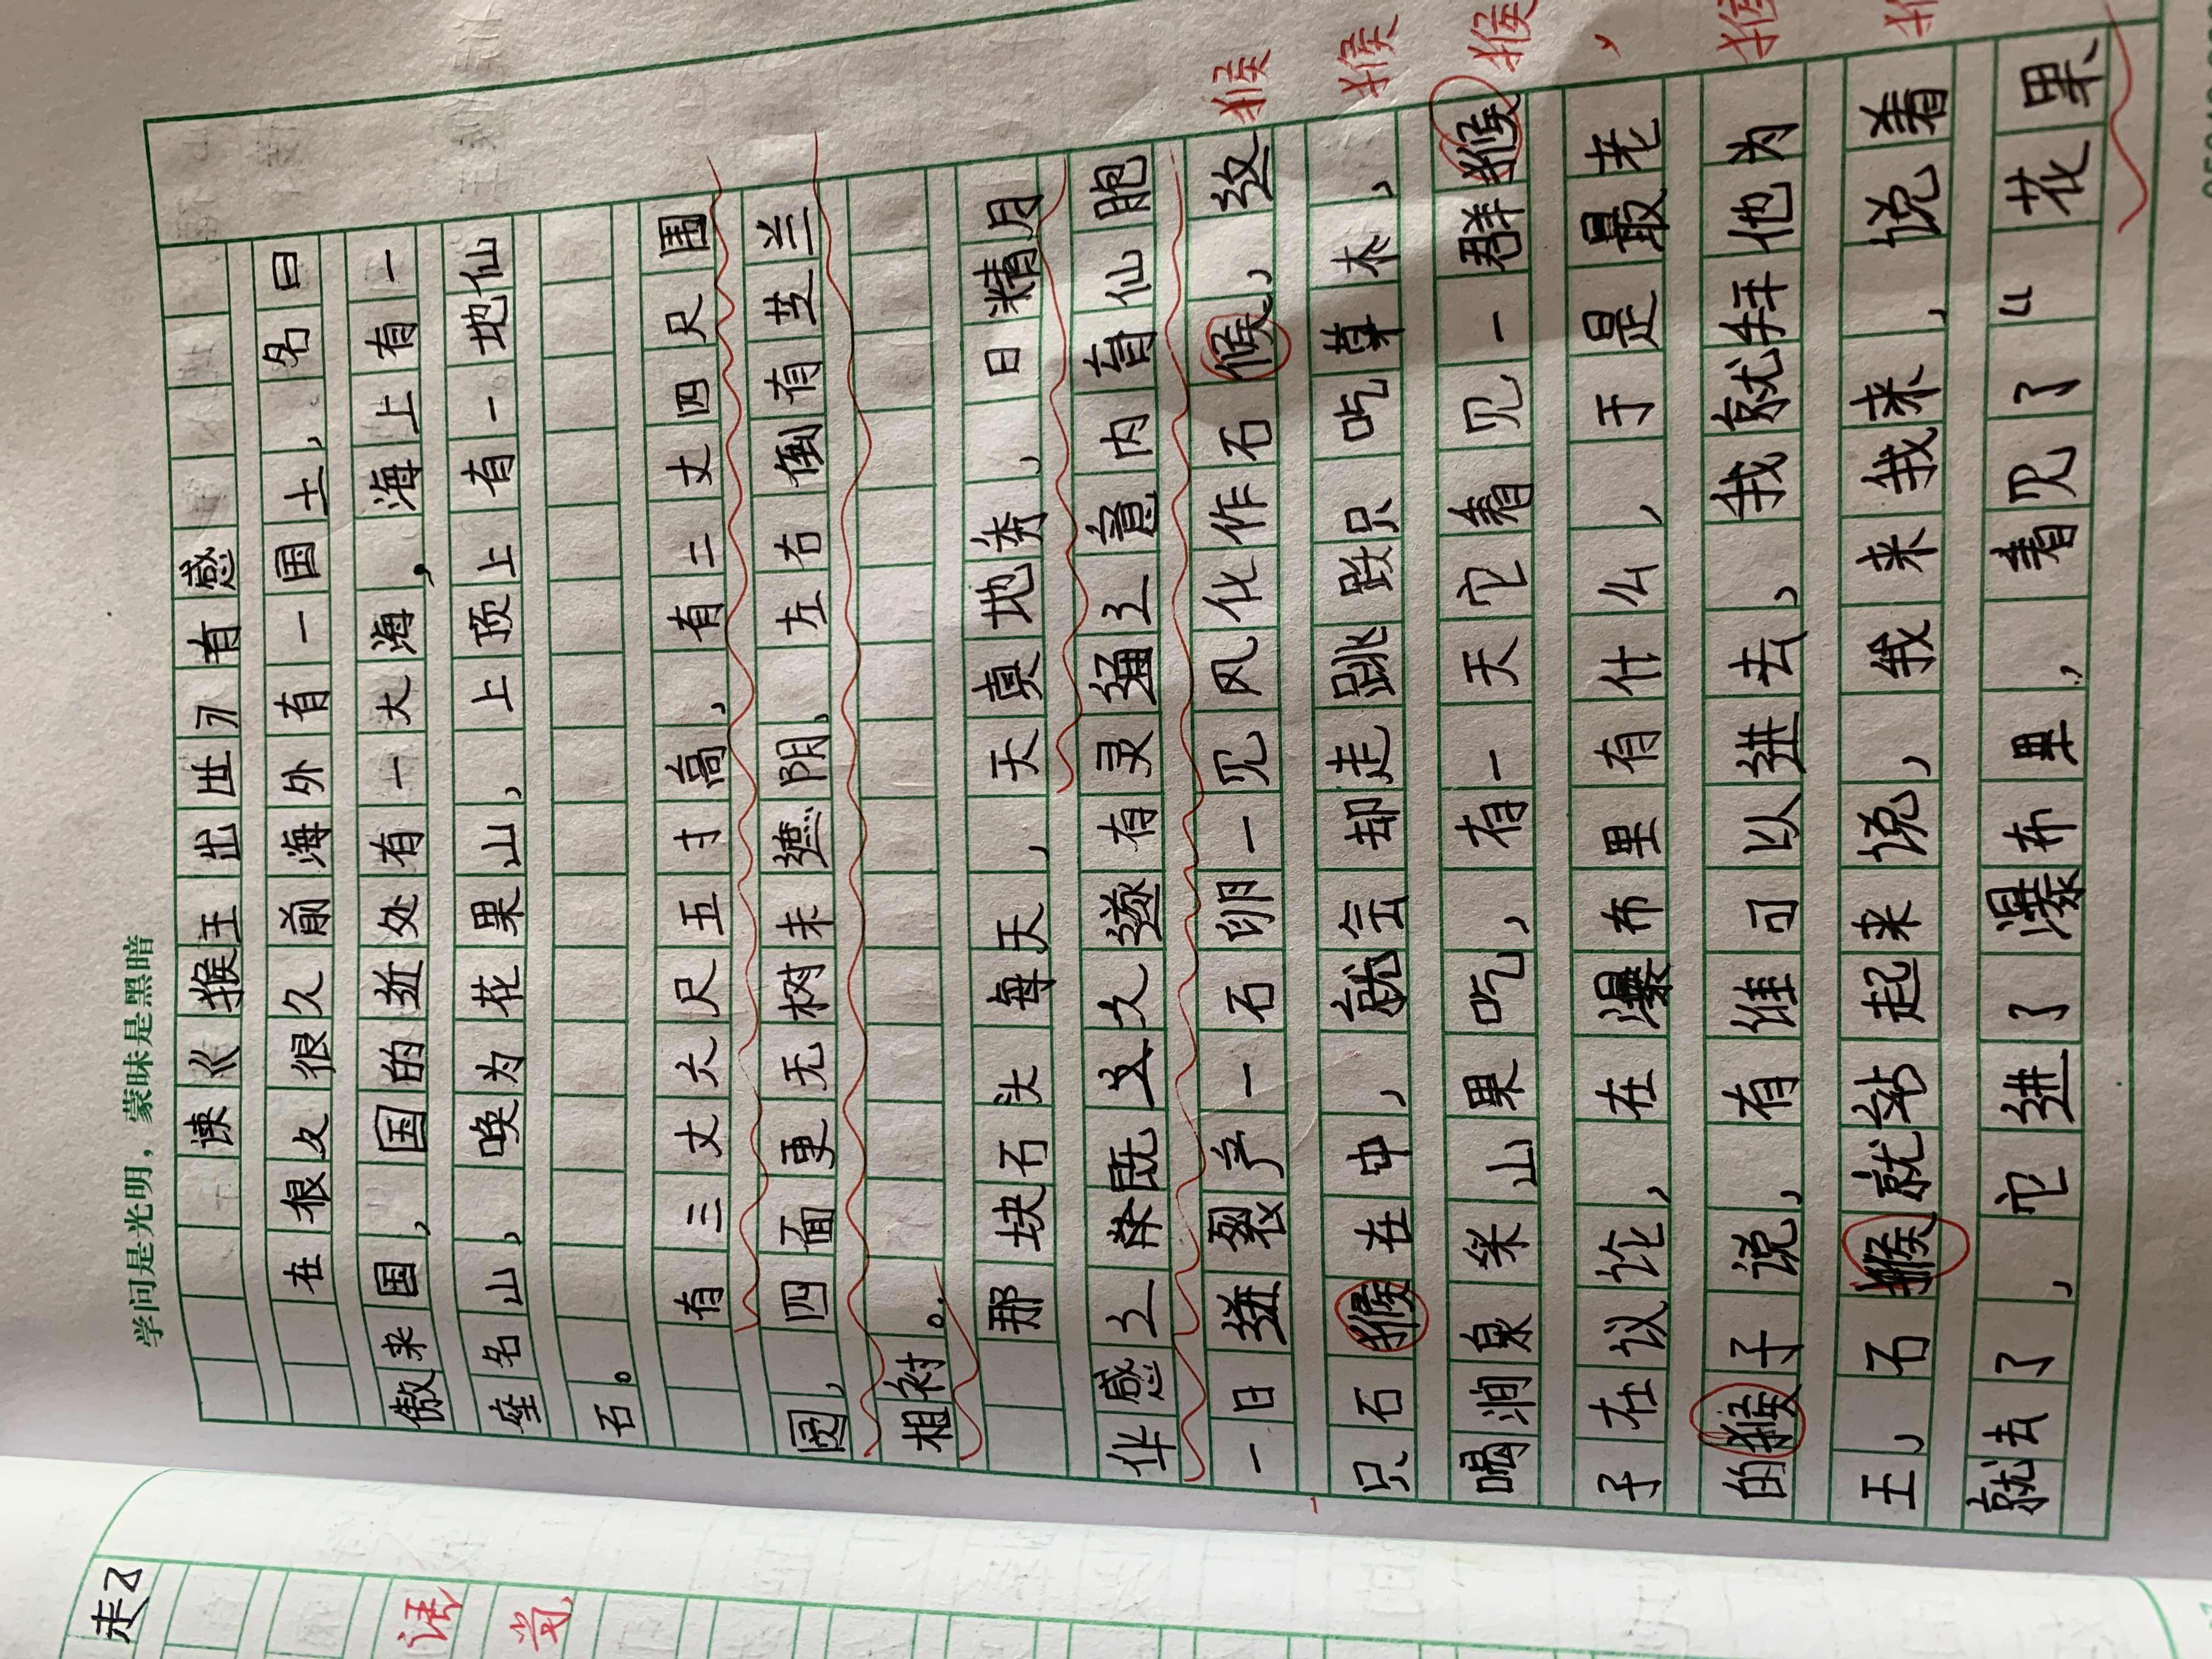 学问是光明，蒙昧是黑暗
谏《猴王出世》有感
在很久很久前海外有一国土，名曰
傲来国，国的近处有一大海，海上有一
座名山，唤为花果山，上顶上有一地仙
石。
有三丈六尺五寸高，有二丈四尺围
圆，四面更无树未遮阴，左右倒有芝兰
相衬。
那块石头每天，天真地秀，日精月
华感之除既久遂有灵通之意内育仙胞
一日迸裂产一石卵一见风化作石候，这 猴
只石猴在中，就会却走跳跃只吃草木， 猴
喝涧泉采山果吃，有一天它看见一群猴 猴
子在议论，在瀑布里有什么，于是最老 ，
的猴子说，有谁可以进去，我就拜他为 猴
王，石猴就站起来说，我来我来，说着 猴
就去了，它进了瀑布果，看见了“花果
未了
语